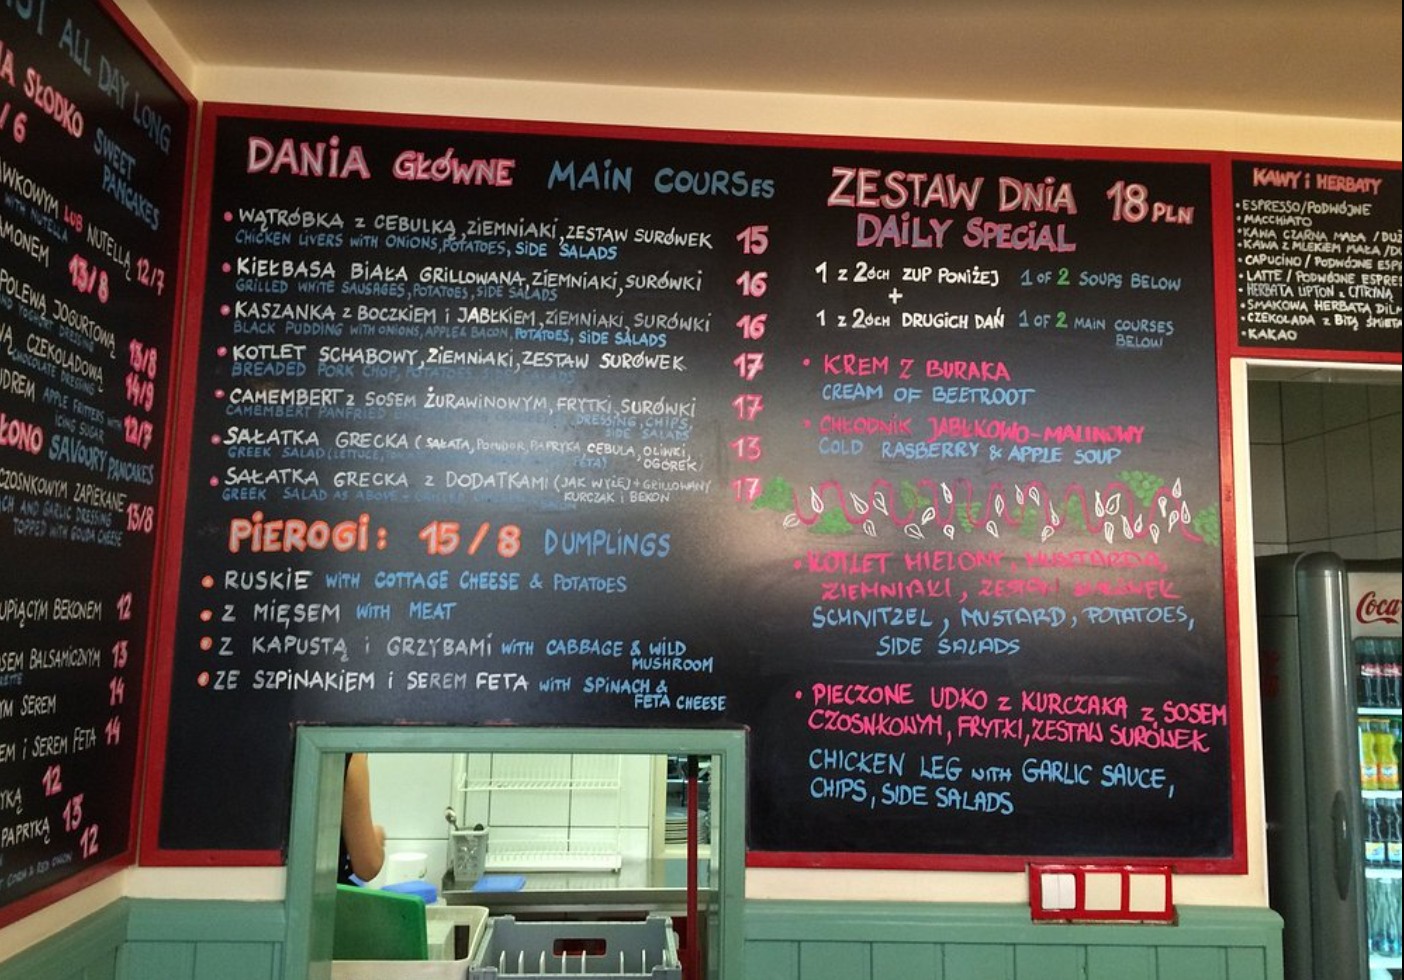 ALL DAY LONG
SŁODKO SWEET
PANCAKES
/ 6
LUB NUTELLĄ 12/7
WITH NUTELLA
13/8
POLEWĄ JOGURTOWĄ 13/8
CZEKOLADOWĄ 14/9
CHOCOLATE DRESSING
APPLE FRITTERS WITH 12/7
ICING SUGAR
SAVOURY PANCAKES
CZOSNKOWYM ZAPIEKANE 13/8
AND GARLIC DRESSING
TOPPED WITH GOUDA CHEESE
BEKONEM 12
BALSAMICZNYM 13
SEREM 14
i SEREM FETA 14
12
PAPRYKĄ 13
12
DANiA GŁÓWNE MAiN COURSES
• WĄTRÓBKA z CEBULKĄ, ZIEMNiAKi, ZESTAW SURÓWEK 15
CHICKEN LIVERS WITH ONIONS, POTATOES, SIDE SALADS
• KIEŁBASA BIAŁA GRILLOWANA, ZIEMNiAKi, SURÓWKI 16
GRILLED WHITE SAUSAGES, POTATOES, SIDE SALADS
• KASZANKA z BOCZKIEM i JABŁKIEM, ZIEMNIAKI, SURÓWKI 16
BLACK PUDDING WITH ONIONS, APPLE & BACON, POTATOES, SIDE SALADS
• KOTLET SCHABOWY, ZIEMNiAKi, ZESTAW SURÓWEK 17
BREADED PORK CHOP, POTATOES, SIDE SALADS
• CAMEMBERT z SOSEM ŻURAWINOWYM, FRYTKi, SURÓWKI 17
CAMEMBERT PANFRIED DRESSING, CHIPS,
SIDE SALADS
• SAŁATKA GRECKA (SAŁATA, POMIDOR, PAPRYKA, CEBULA, OLIWKI, 13
OGÓREK)
GREEK SALAD (LETTUCE, FETA)
• SAŁATKA GRECKA z DODATKAMi (JAK WYŻEJ) + GRILLOWANY 17
KURCZAK i BEKON
GREEK SALAD AS ABOVE +
PiEROGi: 15/8 DUMPLiNGS
• RUSKIE WITH COTTAGE CHEESE & POTATOES
• Z MIĘSEM WITH MEAT
• Z KAPUSTĄ i GRZYBAMI WITH CABBAGE & WILD
MUSHROOM
• ZE SZPINAKIEM i SEREM FETA WITH SPINACH &
FETA CHEESE
ZESTAW DNiA 18 PLN
DAiLY SPECiAL
1 z 2óCH ZUP PONIŻEJ 1 OF 2 SOUPS BELOW
+
1 z 2óCH DRUGiCH DAŃ 1 OF 2 MAIN COURSES
BELOW
• KREM Z BURAKA
CREAM OF BEETROOT
• CHŁODNIK JABŁKOWO-MALINOWY
COLD RASBERRY & APPLE SOUP
• KOTLET MIELONY, MUSZTARDA,
ZIEMNIAKI, ZESTAW SURÓWEK
SCHNITZEL, MUSTARD, POTATOES,
SIDE SALADS
• PIECZONE UDKO z KURCZAKA z SOSEM
CZOSNKOWYM, FRYTKI, ZESTAW SURÓWEK
CHICKEN LEG WITH GARLIC SAUCE,
CHIPS, SIDE SALADS
KAWY i HERBATY
• ESPRESSO/PODWÓJNE
• MACCHIATO
• KAWA CZARNA MAŁA / DUŻ
• KAWA z MLEKIEM MAŁA / DU
• CAPUCINO / PODWÓJNE ESP
• LATTE / PODWÓJNE ESPRES
• HERBATA LIPTON z CYTRYNĄ
• SMAKOWA HERBATA DILM
• CZEKOLADA z BITĄ ŚMIETA
• KAKAO
Coca